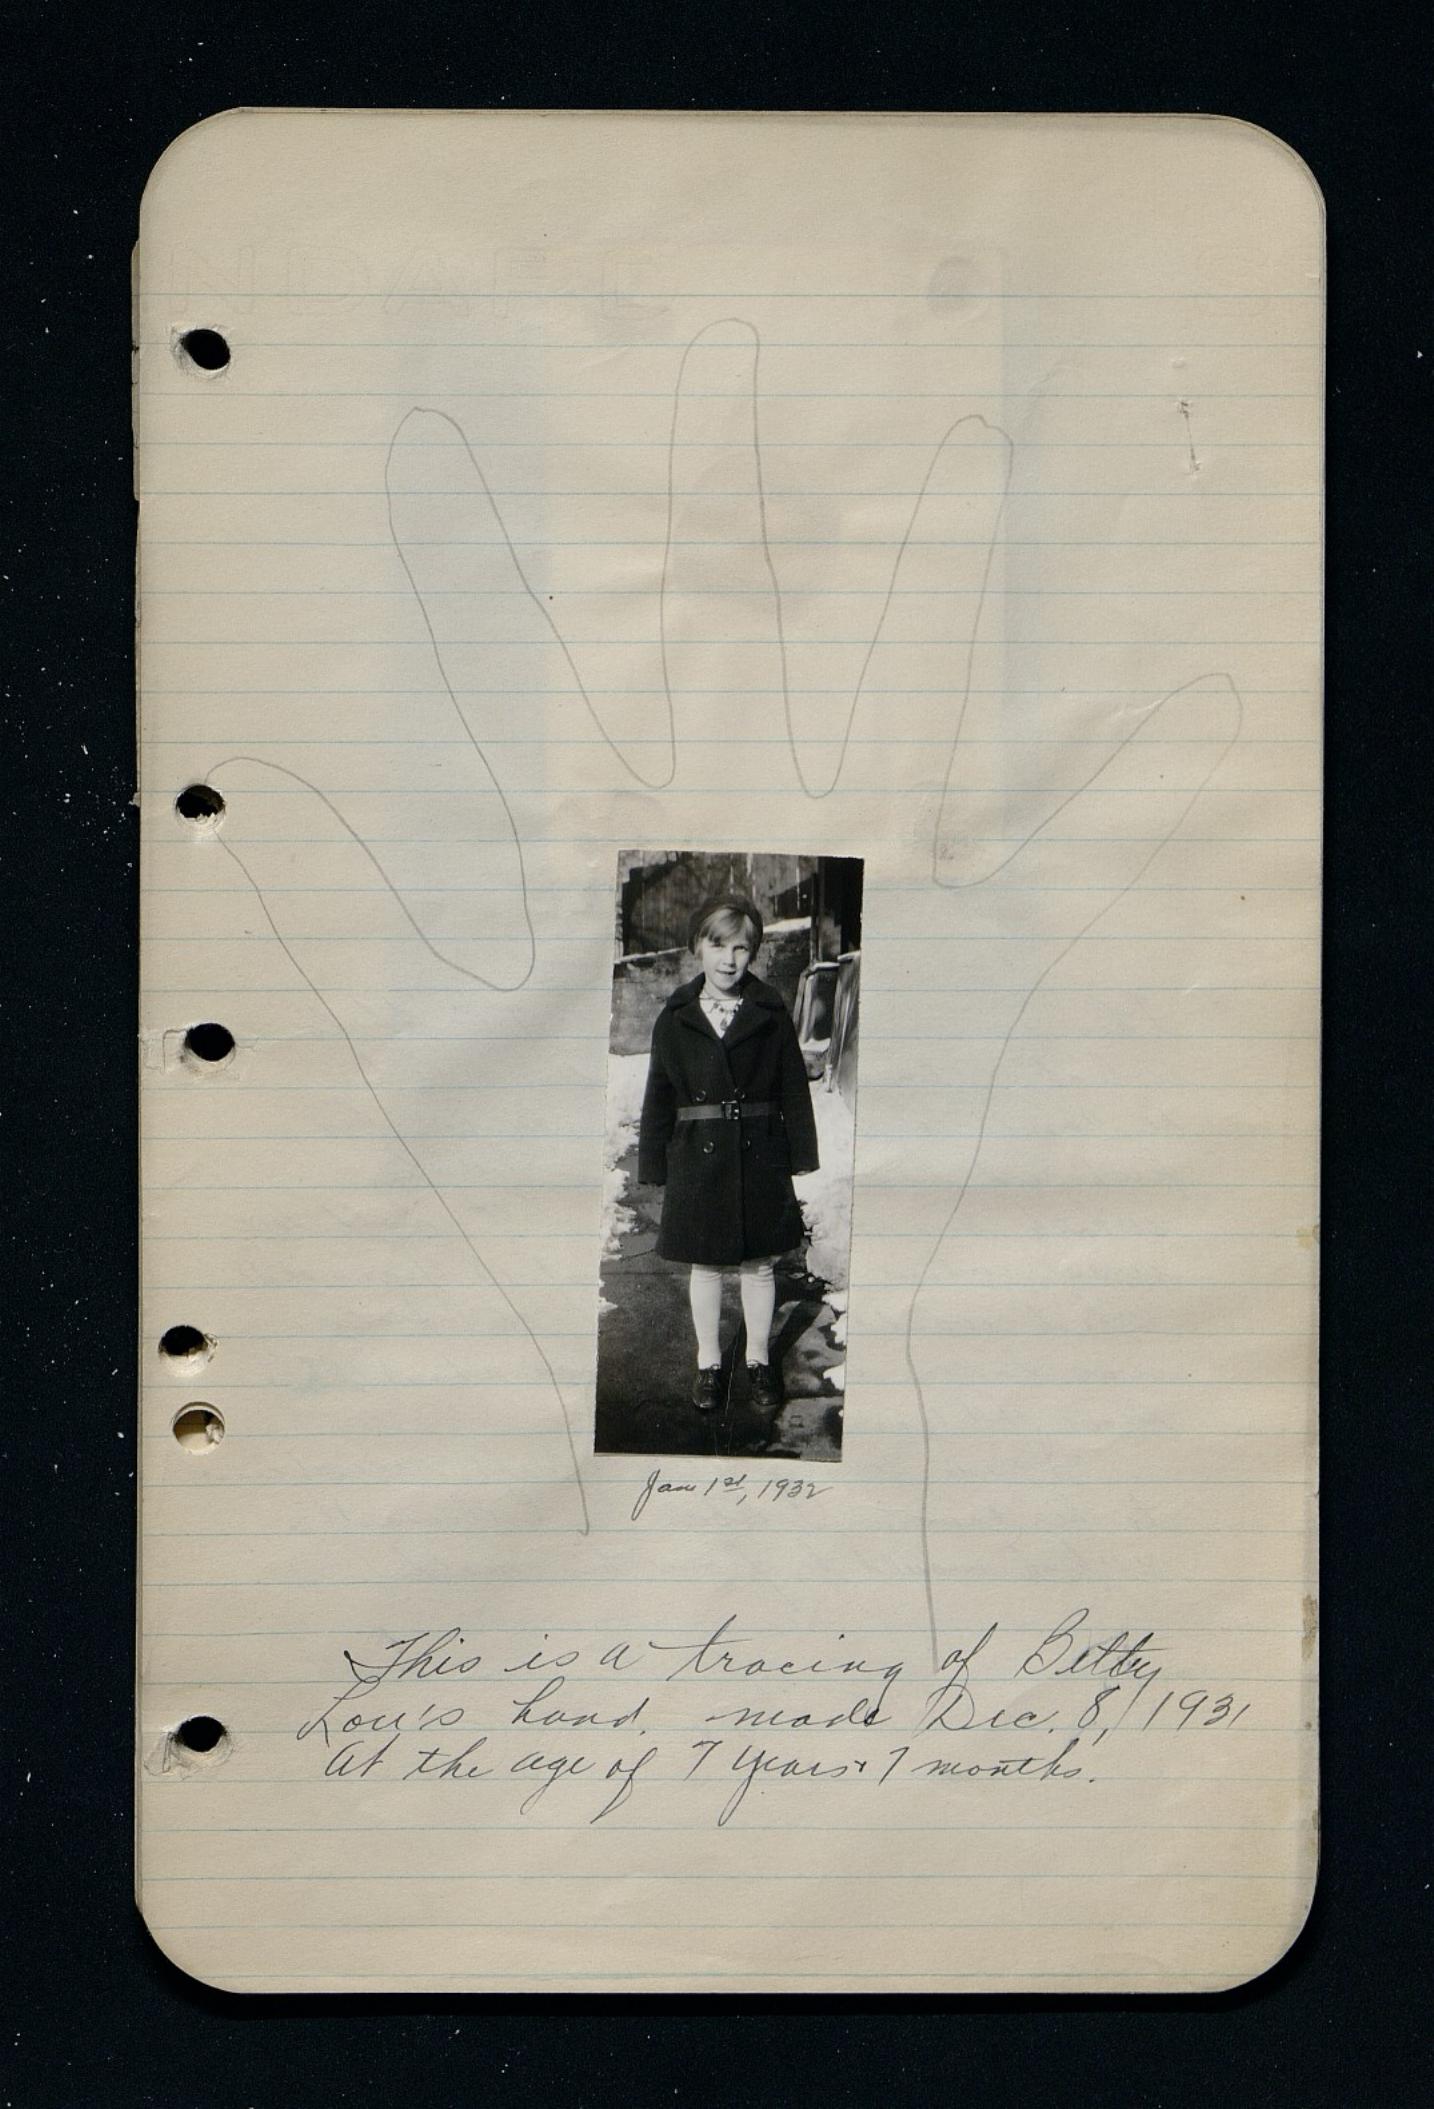 Jan 1st, 1932
This is a tracing of Betty
Lou's hand. made Dec. 8, 1931
At the age of 7 years + 7 months.